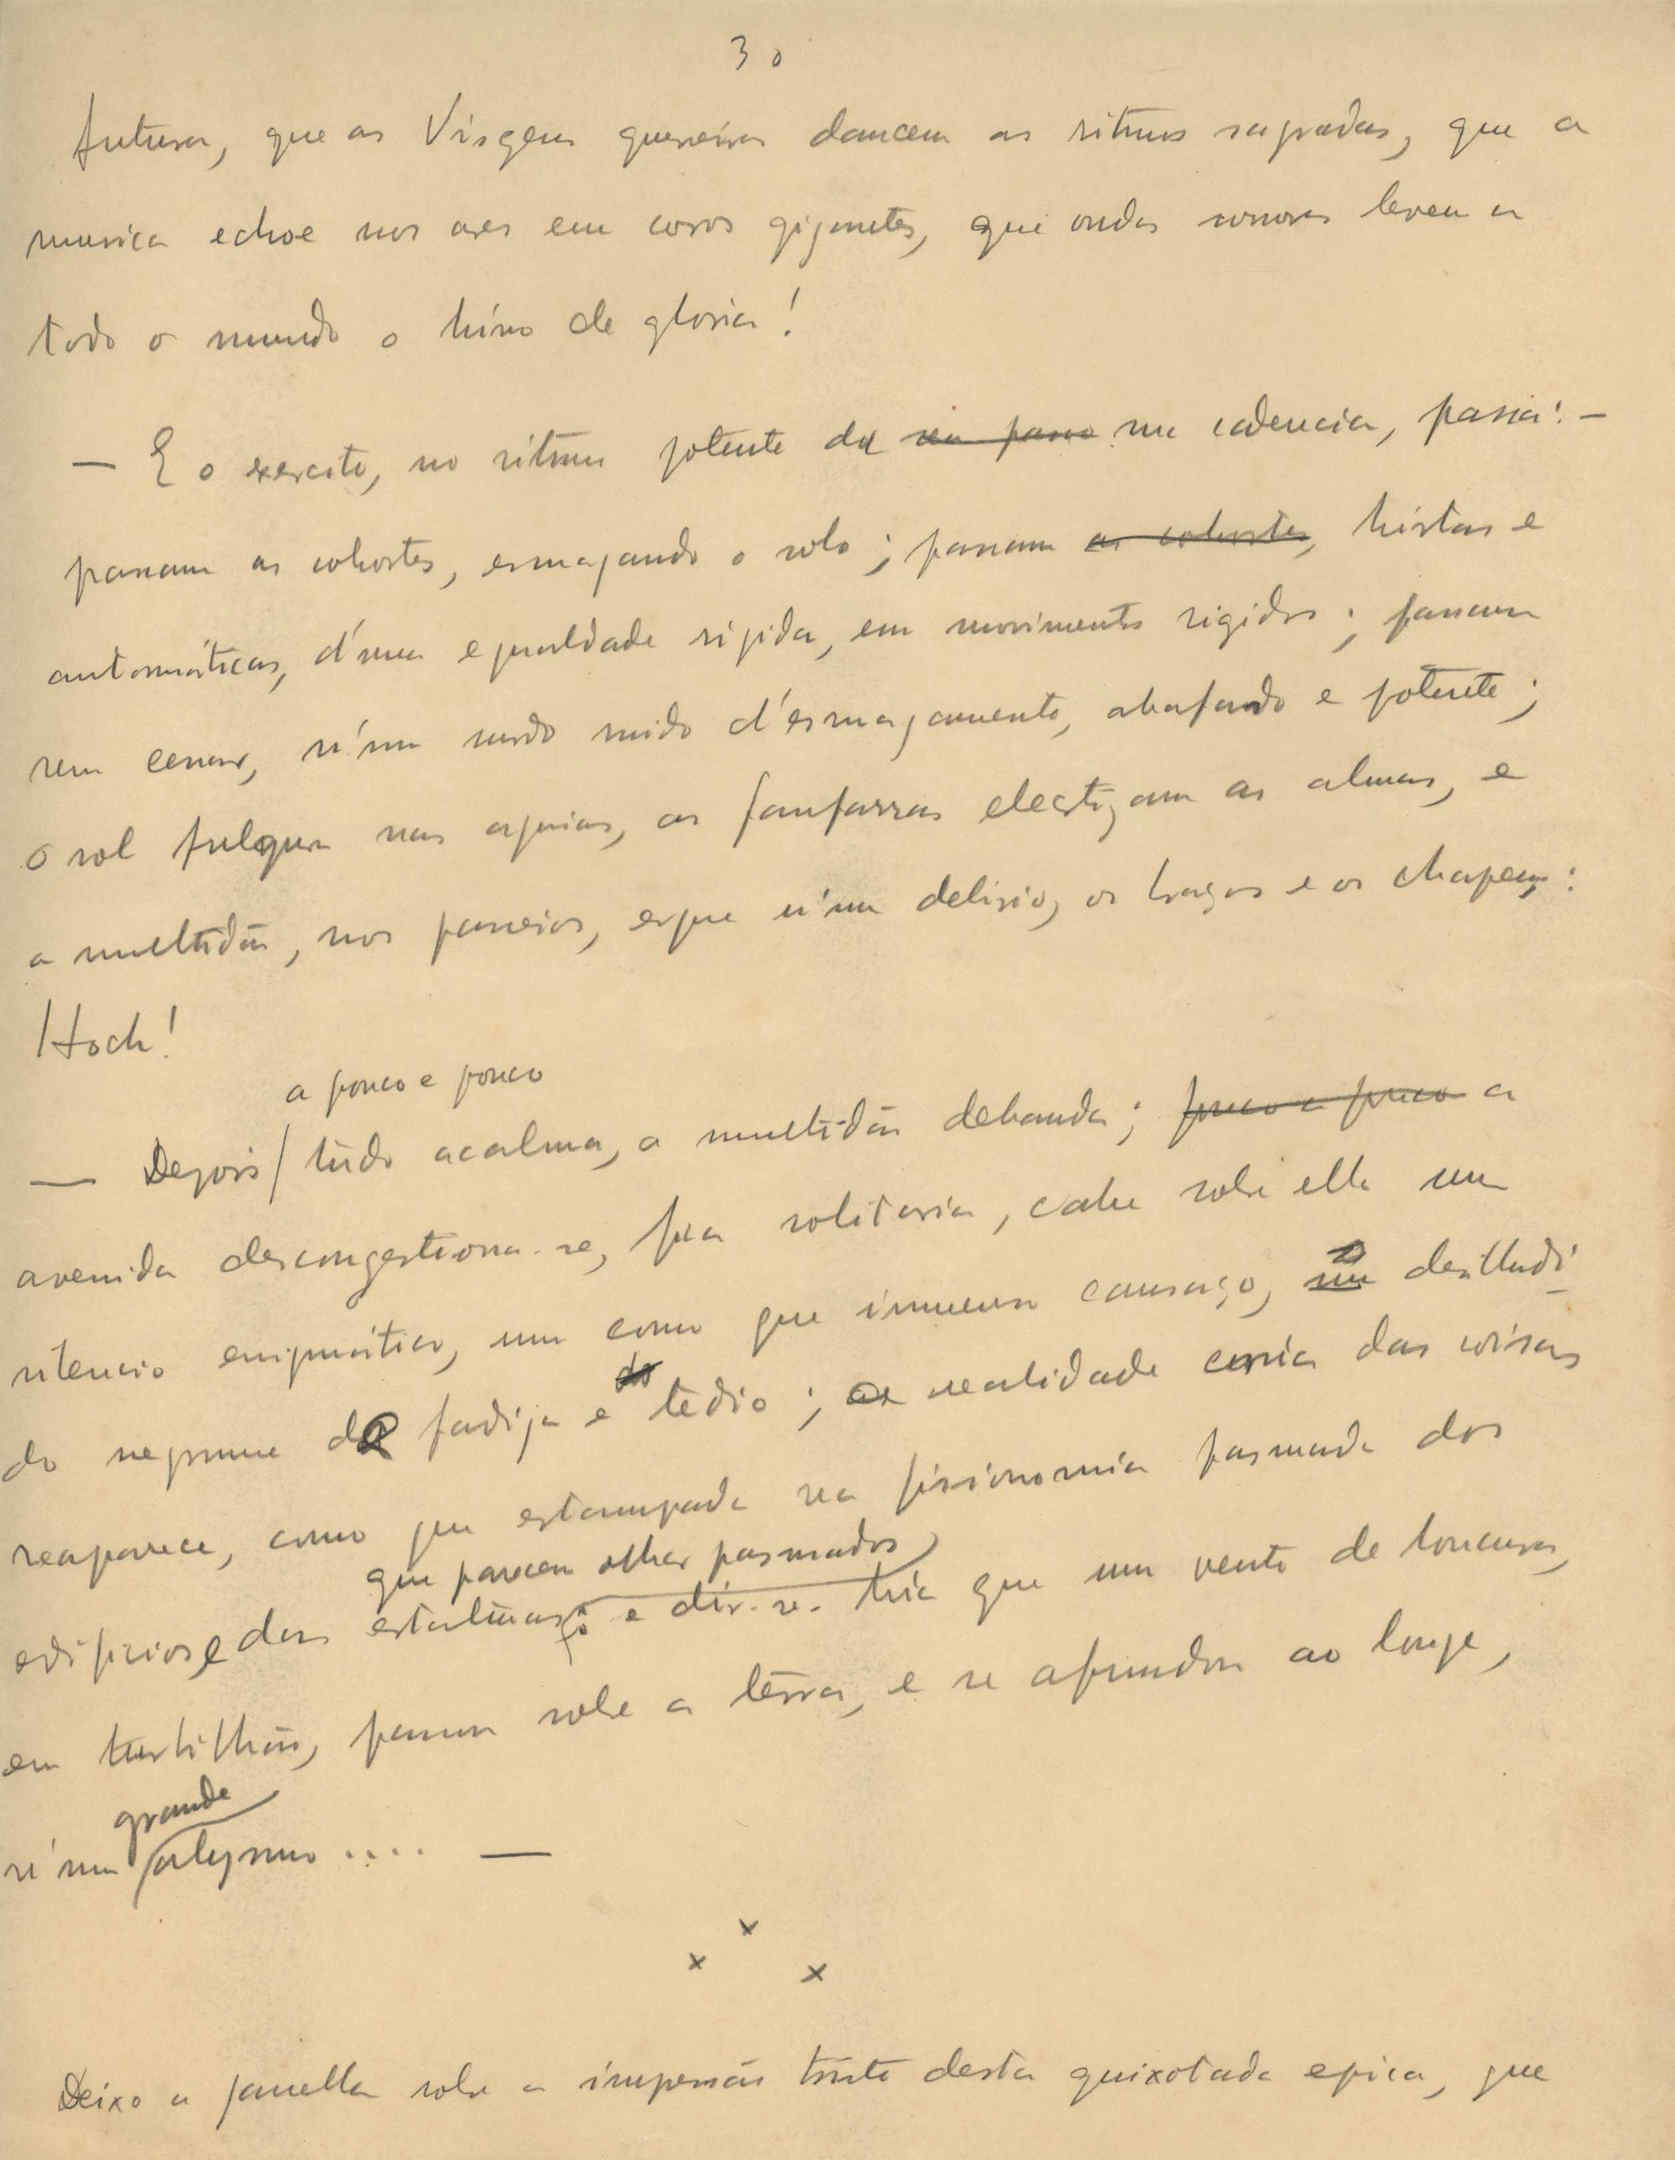 30
futura, que as Virgens guerreiras dancem os ritmos sagrados, que a
musica echoe nos ares em coros gigantes, que ondas sonoras levem a
todo o mundo o hino de gloria!
— E o exercito, no ritmo potente da seu passo sua cadencia, passa: —
passam as cohortes, esmagando o solo; passam as cohortes, hirtas e
automáticas, d'uma egualdade rigida, em movimentos rigidos; passam
sem cessar, n'um surdo ruido d'esmagamento, abafando e potente;
o sol fulgura nas aguias, as fanfarras electrizam as almas, e
a multidão, nos passeios, ergue n'um delirio, os braços e os chapeus:
Hoch!
a pouco e pouco
— Depois / tudo acalma, a multidão debanda; pouco a pouco a
avenida descongestiona-se, fica solitaria, cahe sobre ella um
silencio enigmático, um como que immenso cansaço, o desilludi-
do negrume de fadiga e do tédio; a realidade das coisas
reaparece, como que estampada na fisionomia pasmada dos
que parecem olhar pasmados
edificios e das estatuas; e dir-se-hia que um vento de loucura,
em turbilhão, passou sobre a terra, e se afundou ao longe,
grande
n'um abysmo .... —
x x x
Deixo a janella sob a impressão triste desta quixotada epica, que